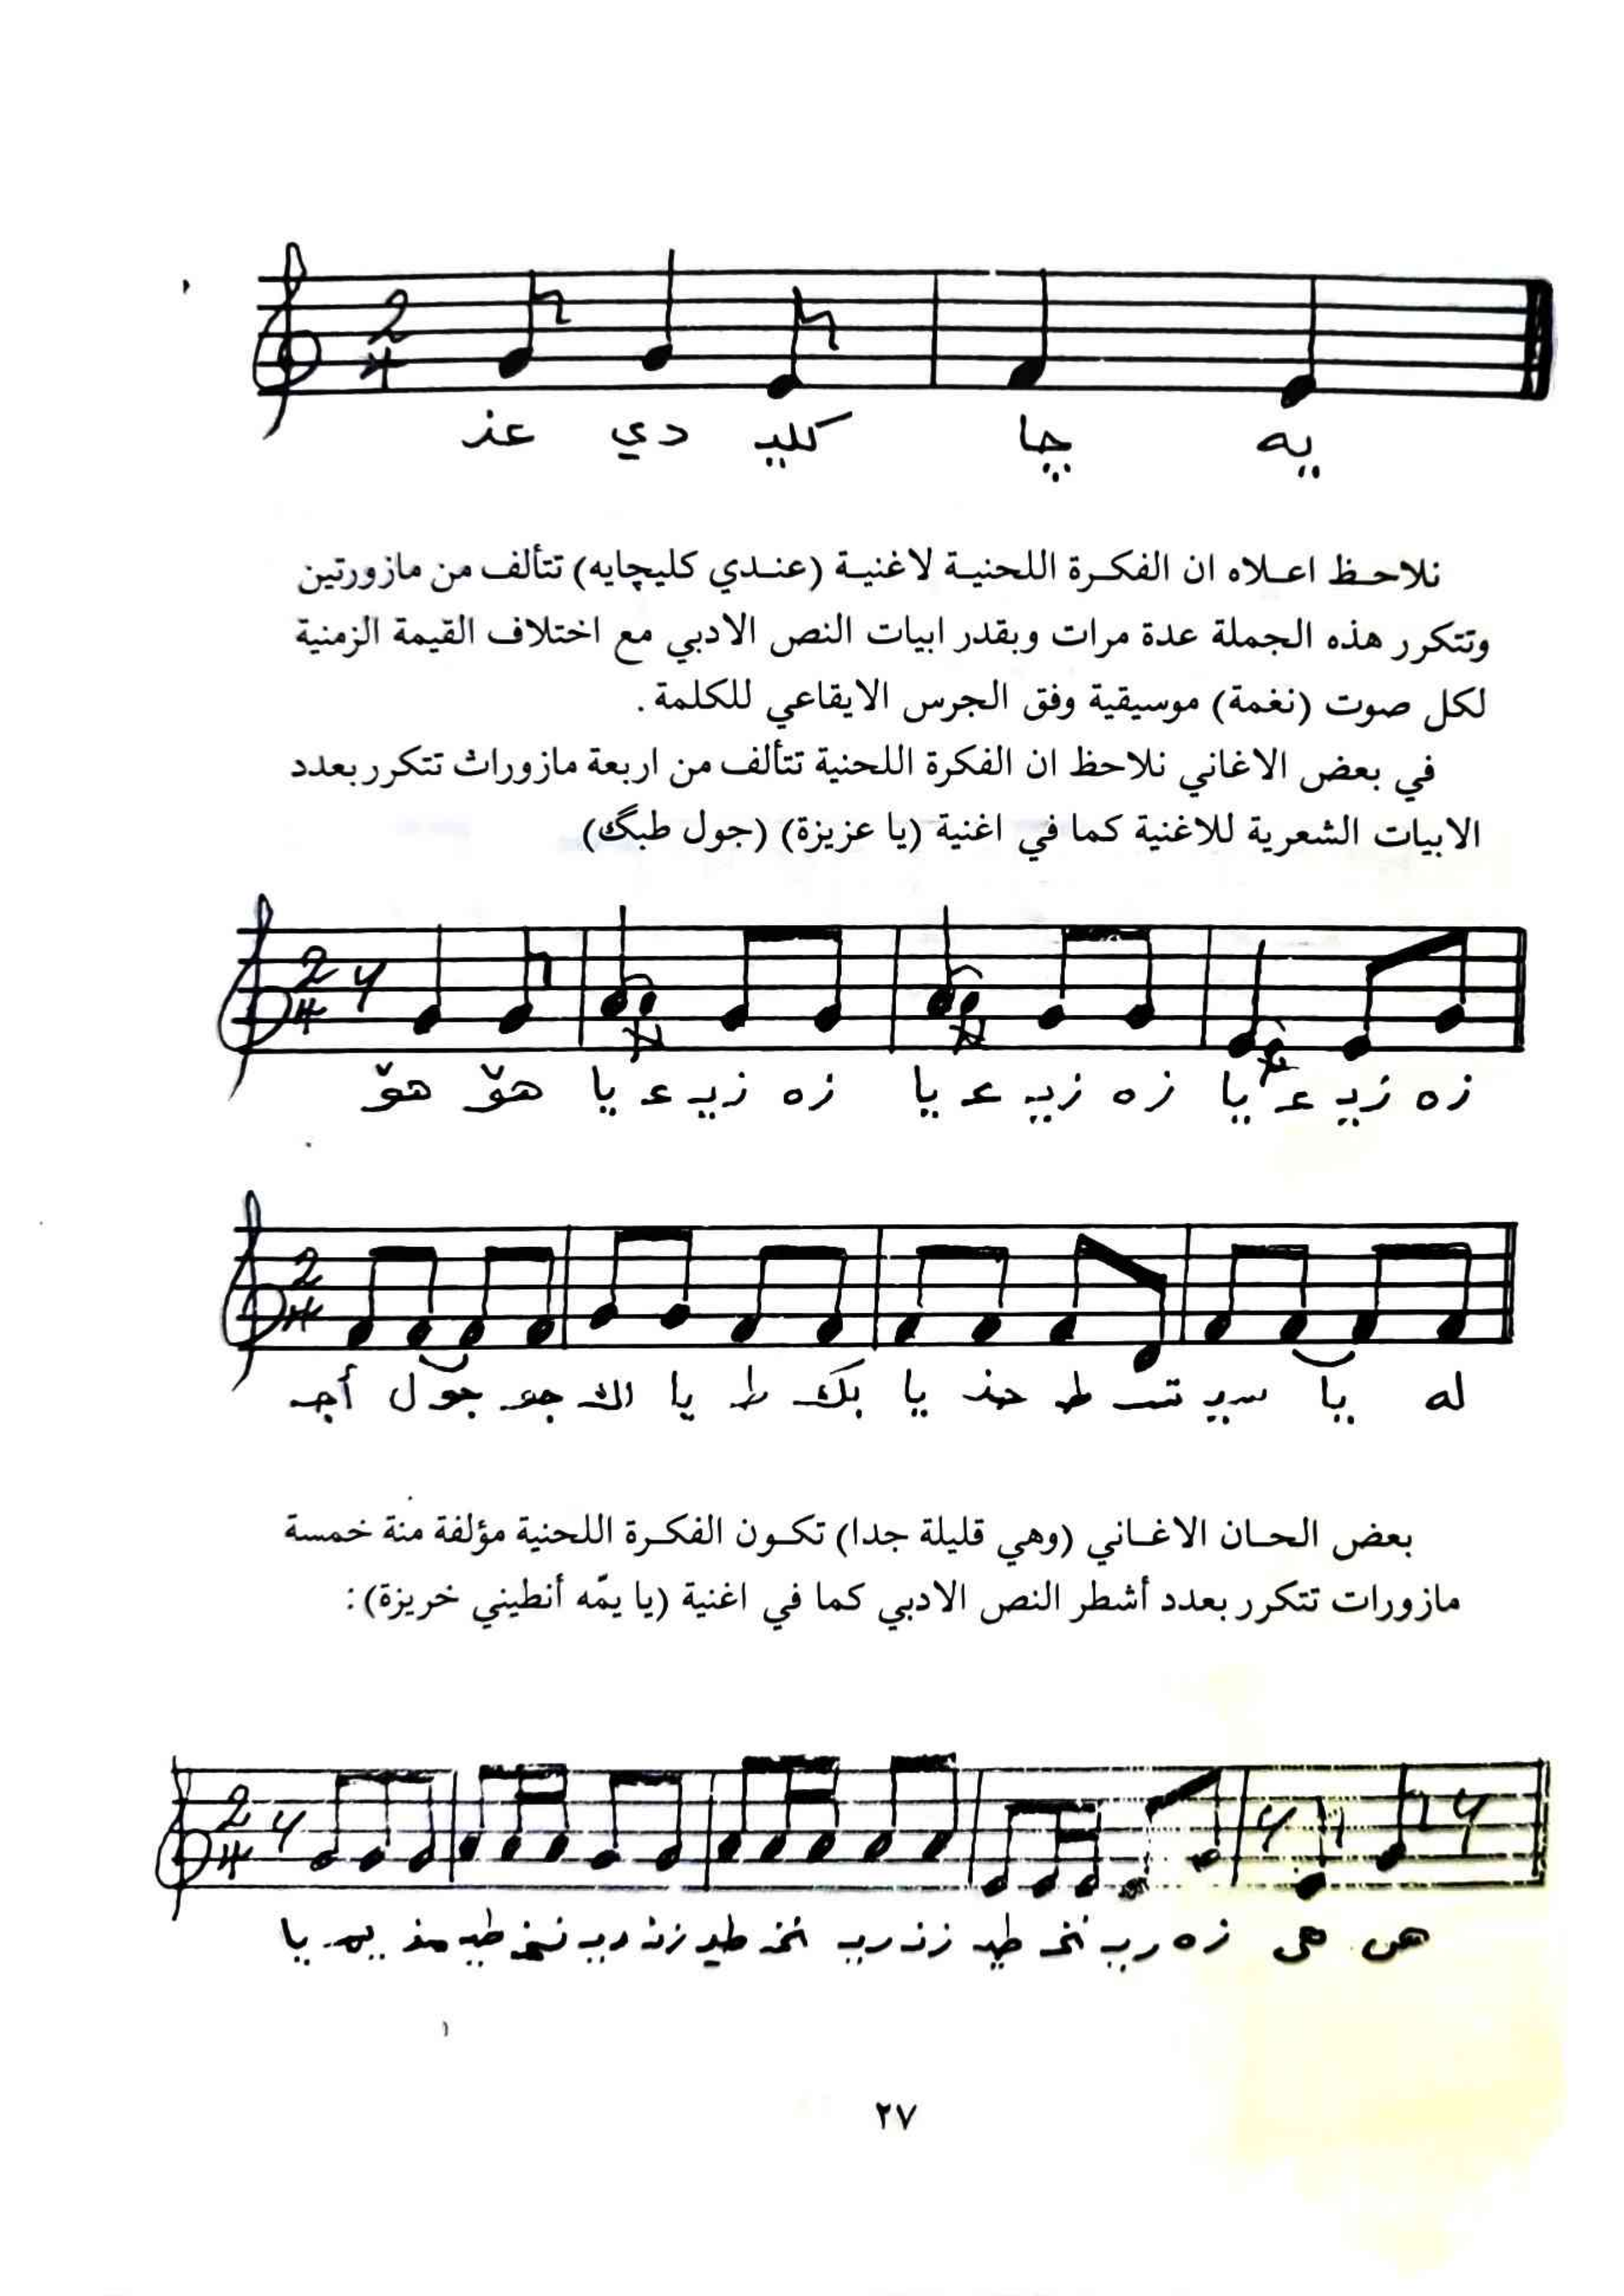 عنـ دي كليـ چا يه
نلاحـظ اعـلاه ان الفكـرة اللحنيـة لاغنيـة (عنـدي كليچايه) تتألف من مازورتين
وتتكرر هذه الجملة عدة مرات وبقدر ابيات النص الادبي مع اختلاف القيمة الزمنية
لكل صوت (نغمة) موسيقية وفق الجرس الايقاعي للكلمة .
في بعض الاغاني نلاحظ ان الفكرة اللحنية تتألف من اربعة مازوراث تتكرر بعدد
الابيات الشعرية للاغنية كما في اغنية (يا عزيزة) (جول طبگك)
هوّ هوّ يا عـ زيـ زه يا عـ زيـ زه يا عـ زيـ زه
أجـ جول جو الك يا ط بك يا حنـ ط تـ سيـ يا له
بعض الحـان الاغـاني (وهي قليلة جدا) تكـون الفكـرة اللحنية مؤلفة منة خمسة
مازورات تتكرر بعدد أشطر النص الادبي كما في اغنية (يا يمّه أنطيني خريزة) :
ريـ زه هى هى
٢٧